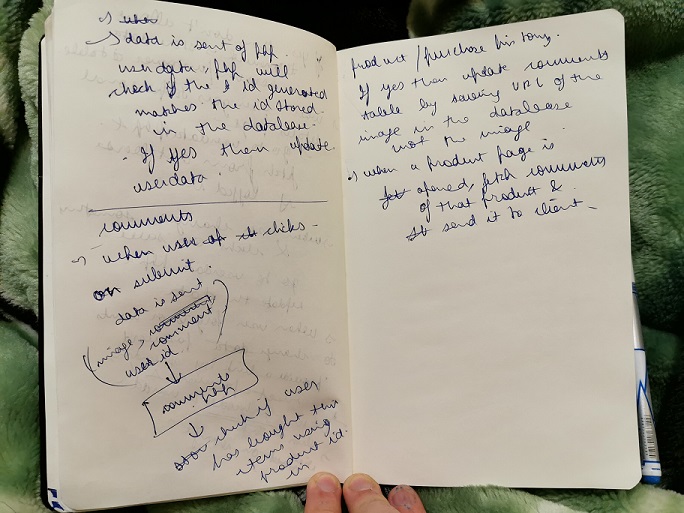 → data is sent of php.
userdata, php will
check if the id generated
matches the id stored
in the database.
- If yes then update
userdata.
comments
→ when user clicks
on submit.
data is sent
(image, comment
user id
↓
comments
php
↓
check if user
has bought this
items using
product id.
in
product / purchase history.
If yes then update comments
table by saving URL of the
image in the database
not the image
→ when a product page is
opened, fetch comments
of that product &
send it to client -